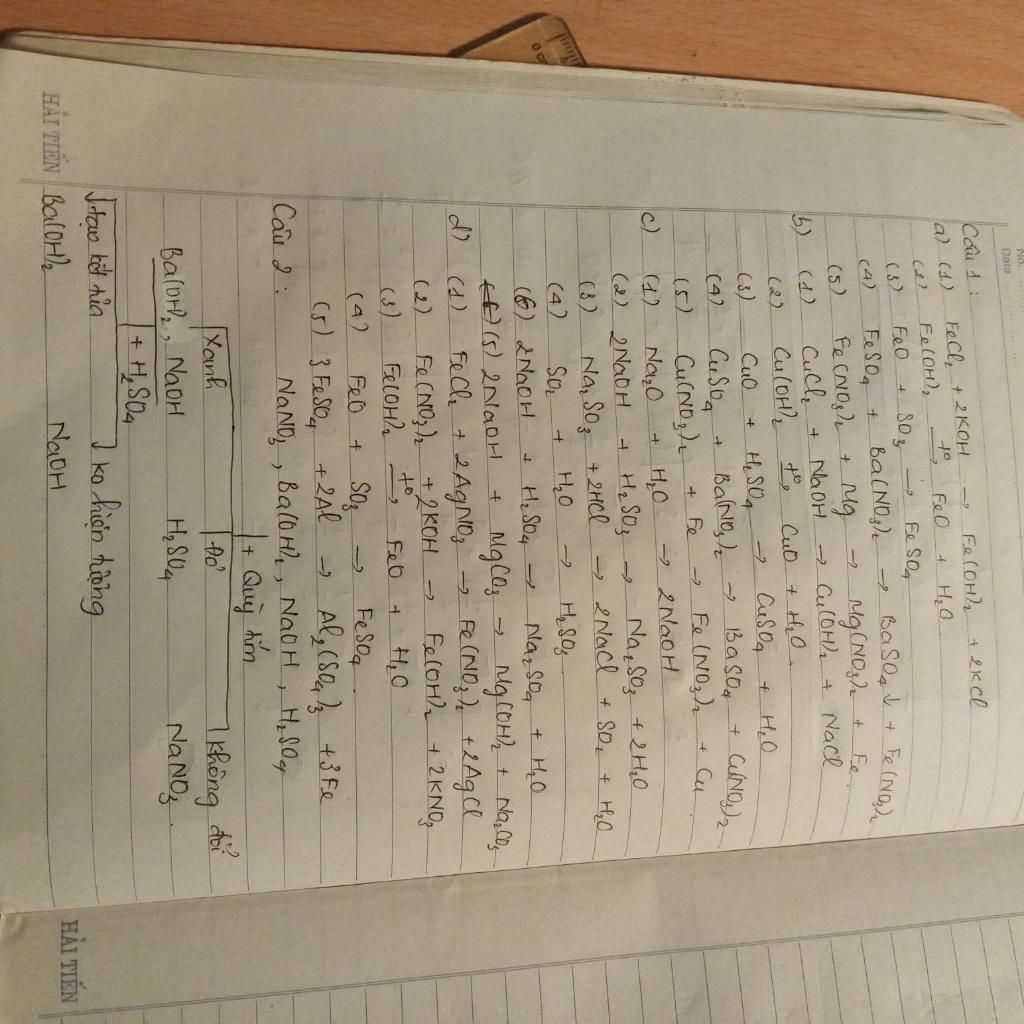 No.
Date
Câu 1:
a) (1) FeCl2 + 2KOH → Fe(OH)2 + 2KCl
(2) Fe(OH)2 t°→ FeO + H2O
(3) FeO + SO3 → FeSO4
(4) FeSO4 + Ba(NO3)2 → BaSO4↓ + Fe(NO3)2
(5) Fe(NO3)2 + Mg → Mg(NO3)2 + Fe.
b) (1) CuCl2 + NaOH → Cu(OH)2 + NaCl
(2) Cu(OH)2 t°→ CuO + H2O.
(3) CuO + H2SO4 → CuSO4 + H2O
(4) CuSO4 + Ba(NO3)2 → BaSO4 + Cu(NO3)2
(5) Cu(NO3)2 + Fe → Fe(NO3)2 + Cu.
c) (1) Na2O + H2O → 2NaOH
(2) 2NaOH + H2SO3 → Na2SO3 + 2H2O
(3) Na2SO3 + 2HCl → 2NaCl + SO2 + H2O
(4) SO2 + H2O → H2SO3
(6) 2NaOH + H2SO4 → Na2SO4 + H2O
(5) 2NaOH + MgCO3 → Mg(OH)2 + Na2CO3
d) (1) FeCl2 + 2AgNO3 → Fe(NO3)2 + 2AgCl
(2) Fe(NO3)2 + 2KOH → Fe(OH)2 + 2KNO3
(3) Fe(OH)2 t°→ FeO + H2O
(4) FeO + SO3 → FeSO4.
(5) 3FeSO4 + 2Al → Al2(SO4)3 + 3Fe
Câu 2: NaNO3, Ba(OH)2, NaOH, H2SO4
+ Quỳ tím
Xanh Đỏ không đổi
Ba(OH)2, NaOH H2SO4 NaNO3.
+ H2SO4
↓tạo kết tủa ko hiện tượng
Ba(OH)2 NaOH
HẢI TIẾN
HẢI TIẾN